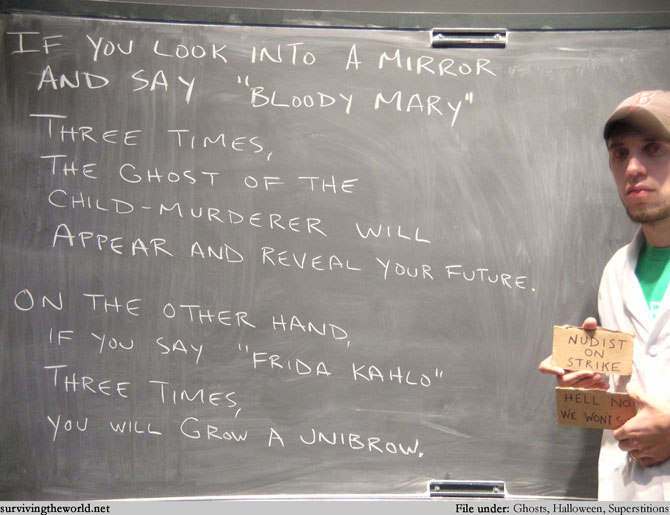 IF YOU LOOK INTO A MIRROR
AND SAY "BLOODY MARY"
THREE TIMES,
THE GHOST OF THE
CHILD-MURDERER WILL
APPEAR AND REVEAL YOUR FUTURE.
ON THE OTHER HAND,
IF YOU SAY "FRIDA KAHLO"
THREE TIMES,
YOU WILL GROW A UNIBROW.
NUDIST
ON
STRIKE
HELL NO
WE WONT
survivingtheworld.net
File under: Ghosts, Halloween, Superstitions